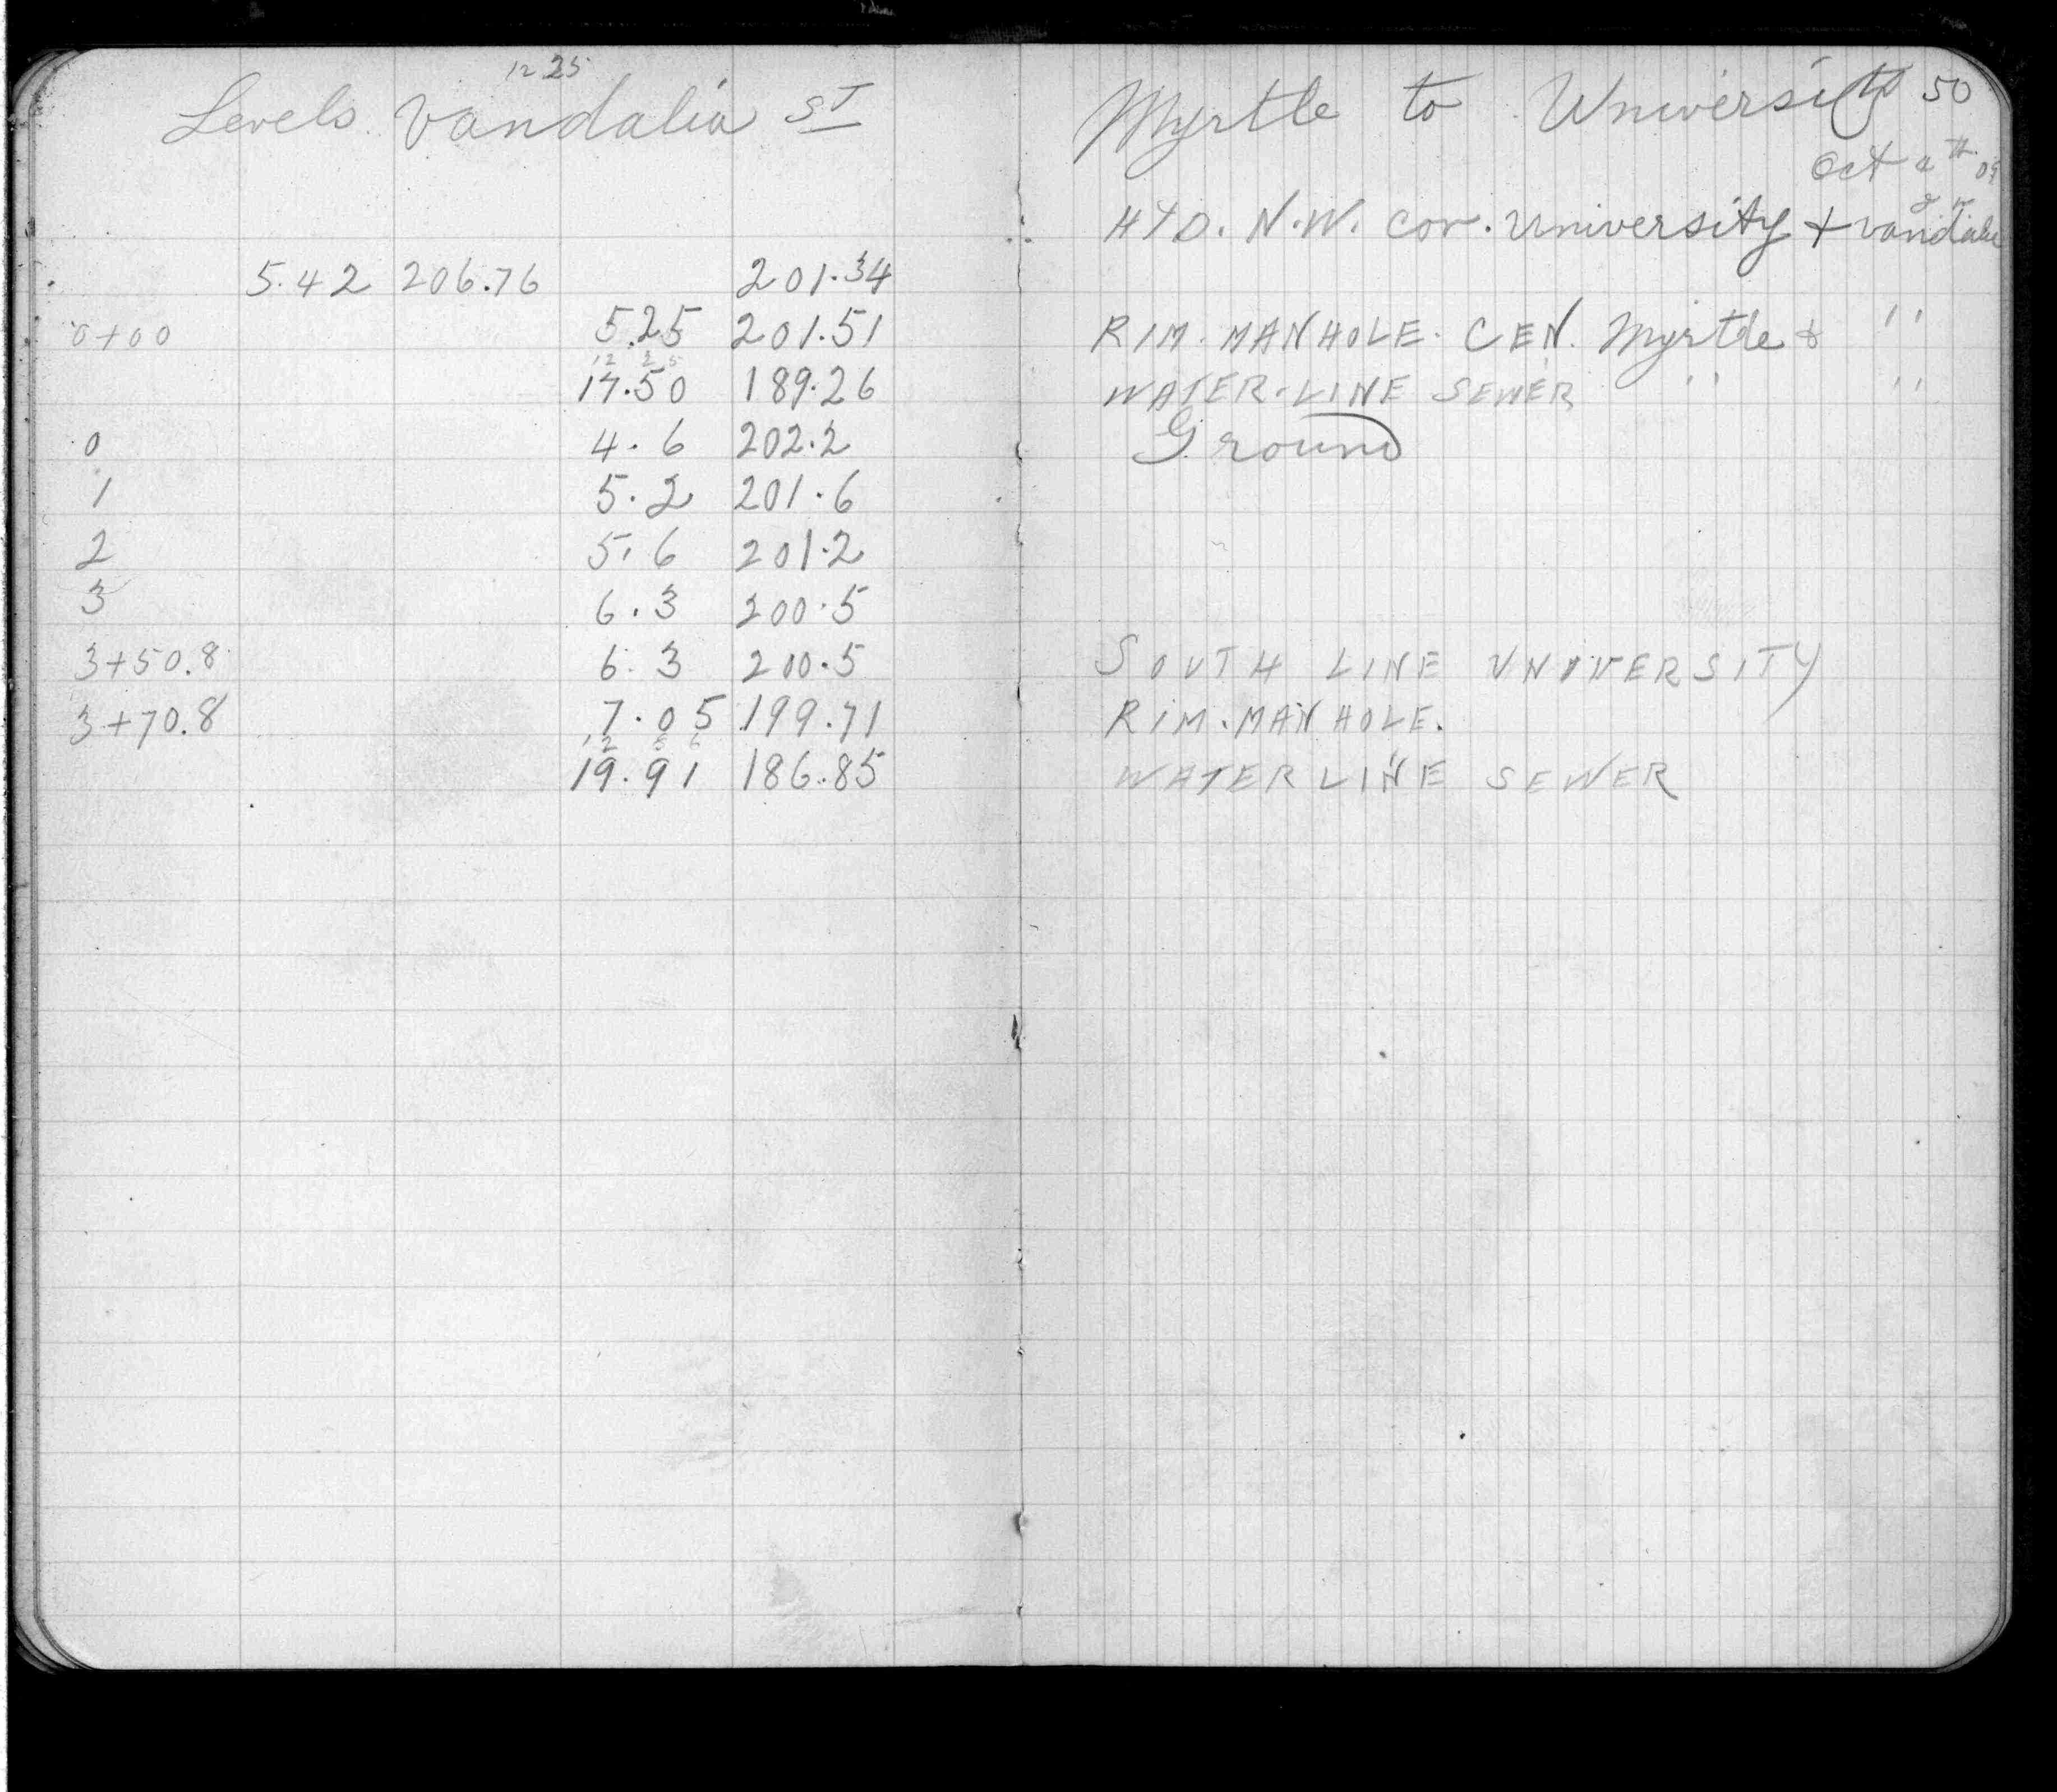 12 25
Levels Vandalia ST
5.42 206.76 201.34
0+00 5.25 201.51
12 25
17.50 189.26
0 4.6 202.2
1 5.2 201.6
2 5.6 201.2
3 6.3 200.5
3+50.8 6.3 200.5
3+70.8 7.05 199.71
12 86
19.91 186.85
Myrtle to University 50
Oct 09
HYD. N.W. cor. University + Vandalia
RIM. MANHOLE. CEN. Myrtle & ''
WATER-LINE SEWER '' ''
Ground
SOUTH LINE UNIVERSITY
RIM. MANHOLE.
WATER LINE SEWER